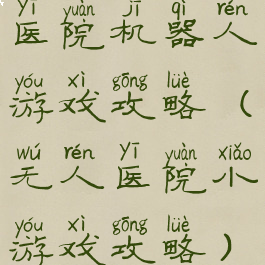 yī yuàn jī qì rén
医院机器人
yóu xì gōng lüè
游戏攻略（
wú rén yī yuàn xiǎo
无人医院小
yóu xì gōng lüè
游戏攻略）